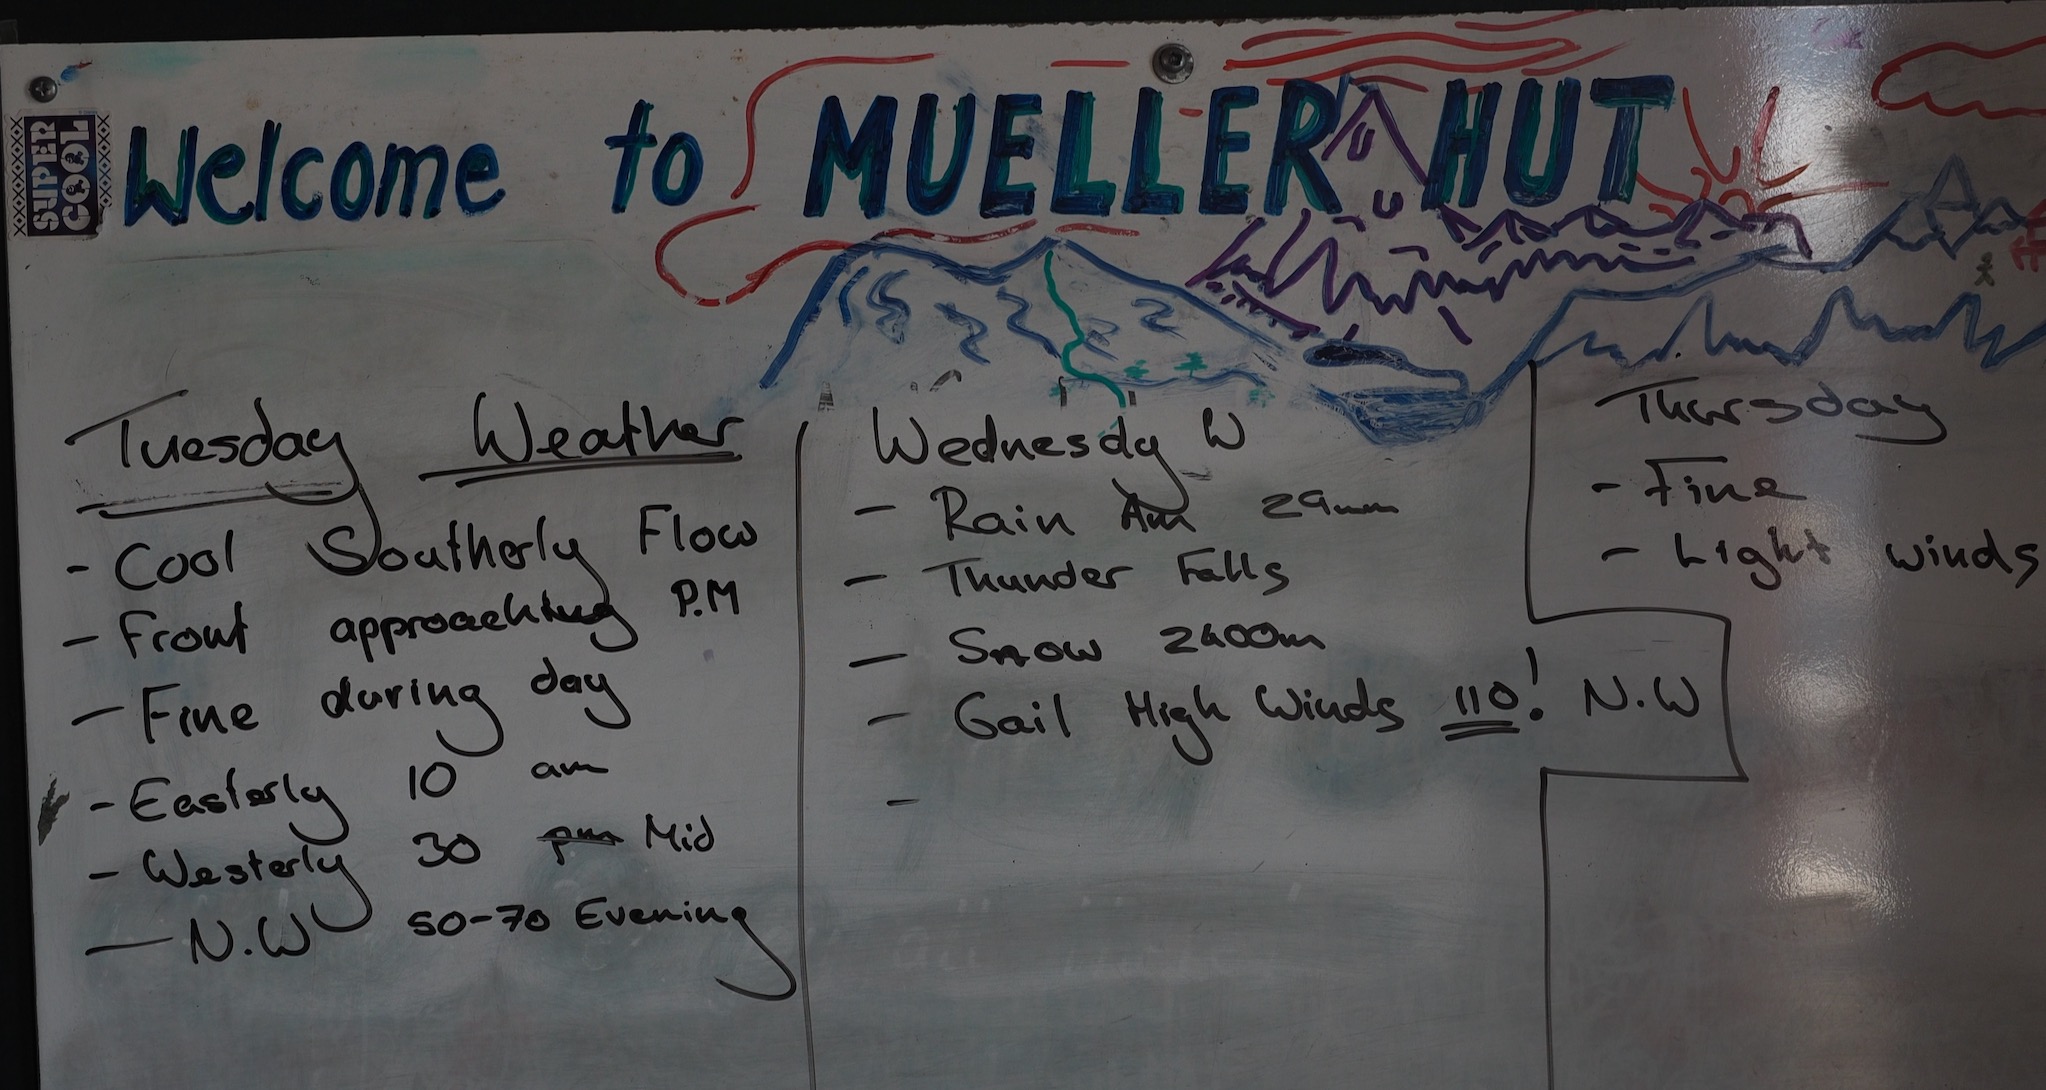 SUPER
COOL
Welcome to MUELLER HUT
Tuesday Weather
- Cool Southerly Flow
- Front approaching P.M
- Fine during day
- Easterly 10 am
- Westerly 30 pm Mid
- N.W 50-70 Evening
Wednesdy W
- Rain Am 29mm
- Thunder Falls
- Snow 2400m
- Gail High Winds 110! N.W
-
Thursday
- Fine
- Light winds